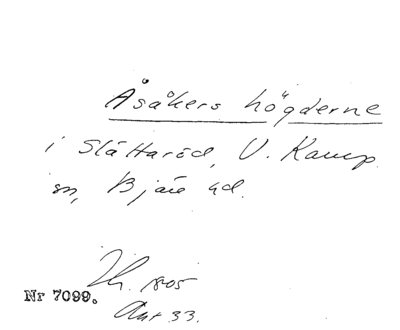 Åsåkers högderne
i Slättaröd, V. Karup
sn, Bjäre hd.
1805
Nr 7099.
Akt 33.